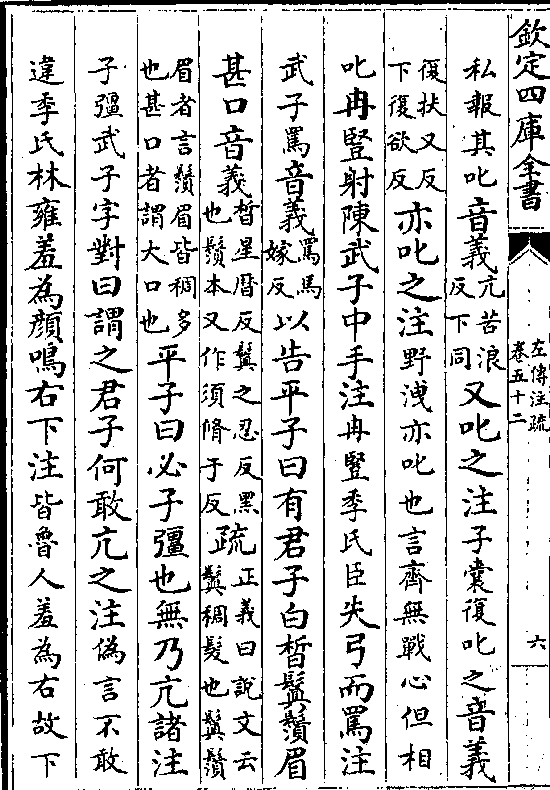 欽定四庫全書
左傳注疏
卷五十二
六
私報其叱音義亢苦浪反下同又叱之注子囊復叱之音義
復扶又反下復欲反亦叱之注野洩亦叱也言齊無戰心但相
叱冉豎射陳武子中手注冉豎季氏臣失弓而罵注
武子罵音義罵馬嫁反以告平子曰有君子白晳鬒鬚眉
甚口音義晳星暦反鬒之忍反黑也鬚本又作須脩于反疏正義曰說文云鬒稠髮也鬒鬚
眉者言鬚眉皆稠多也甚口者謂大口也平子曰必子彊也無乃亢諸注
子彊武子字對曰謂之君子何敢亢之注偽言不敢
違季氏林雍羞為顏鳴右下注皆魯人羞為右故下